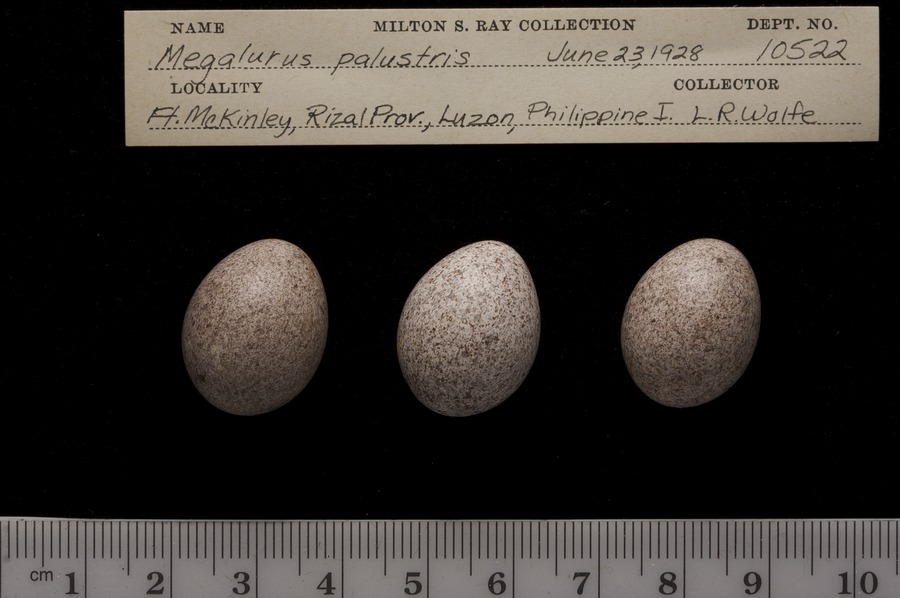 NAME MILTON S. RAY COLLECTION DEPT. NO.
Megalurus palustris June 23, 1928 10522
LOCALITY COLLECTOR
Ft. McKinley, Rizal Prov., Luzon, Philippine I. L.R. Wolfe
cm 1 2 3 4 5 6 7 8 9 10